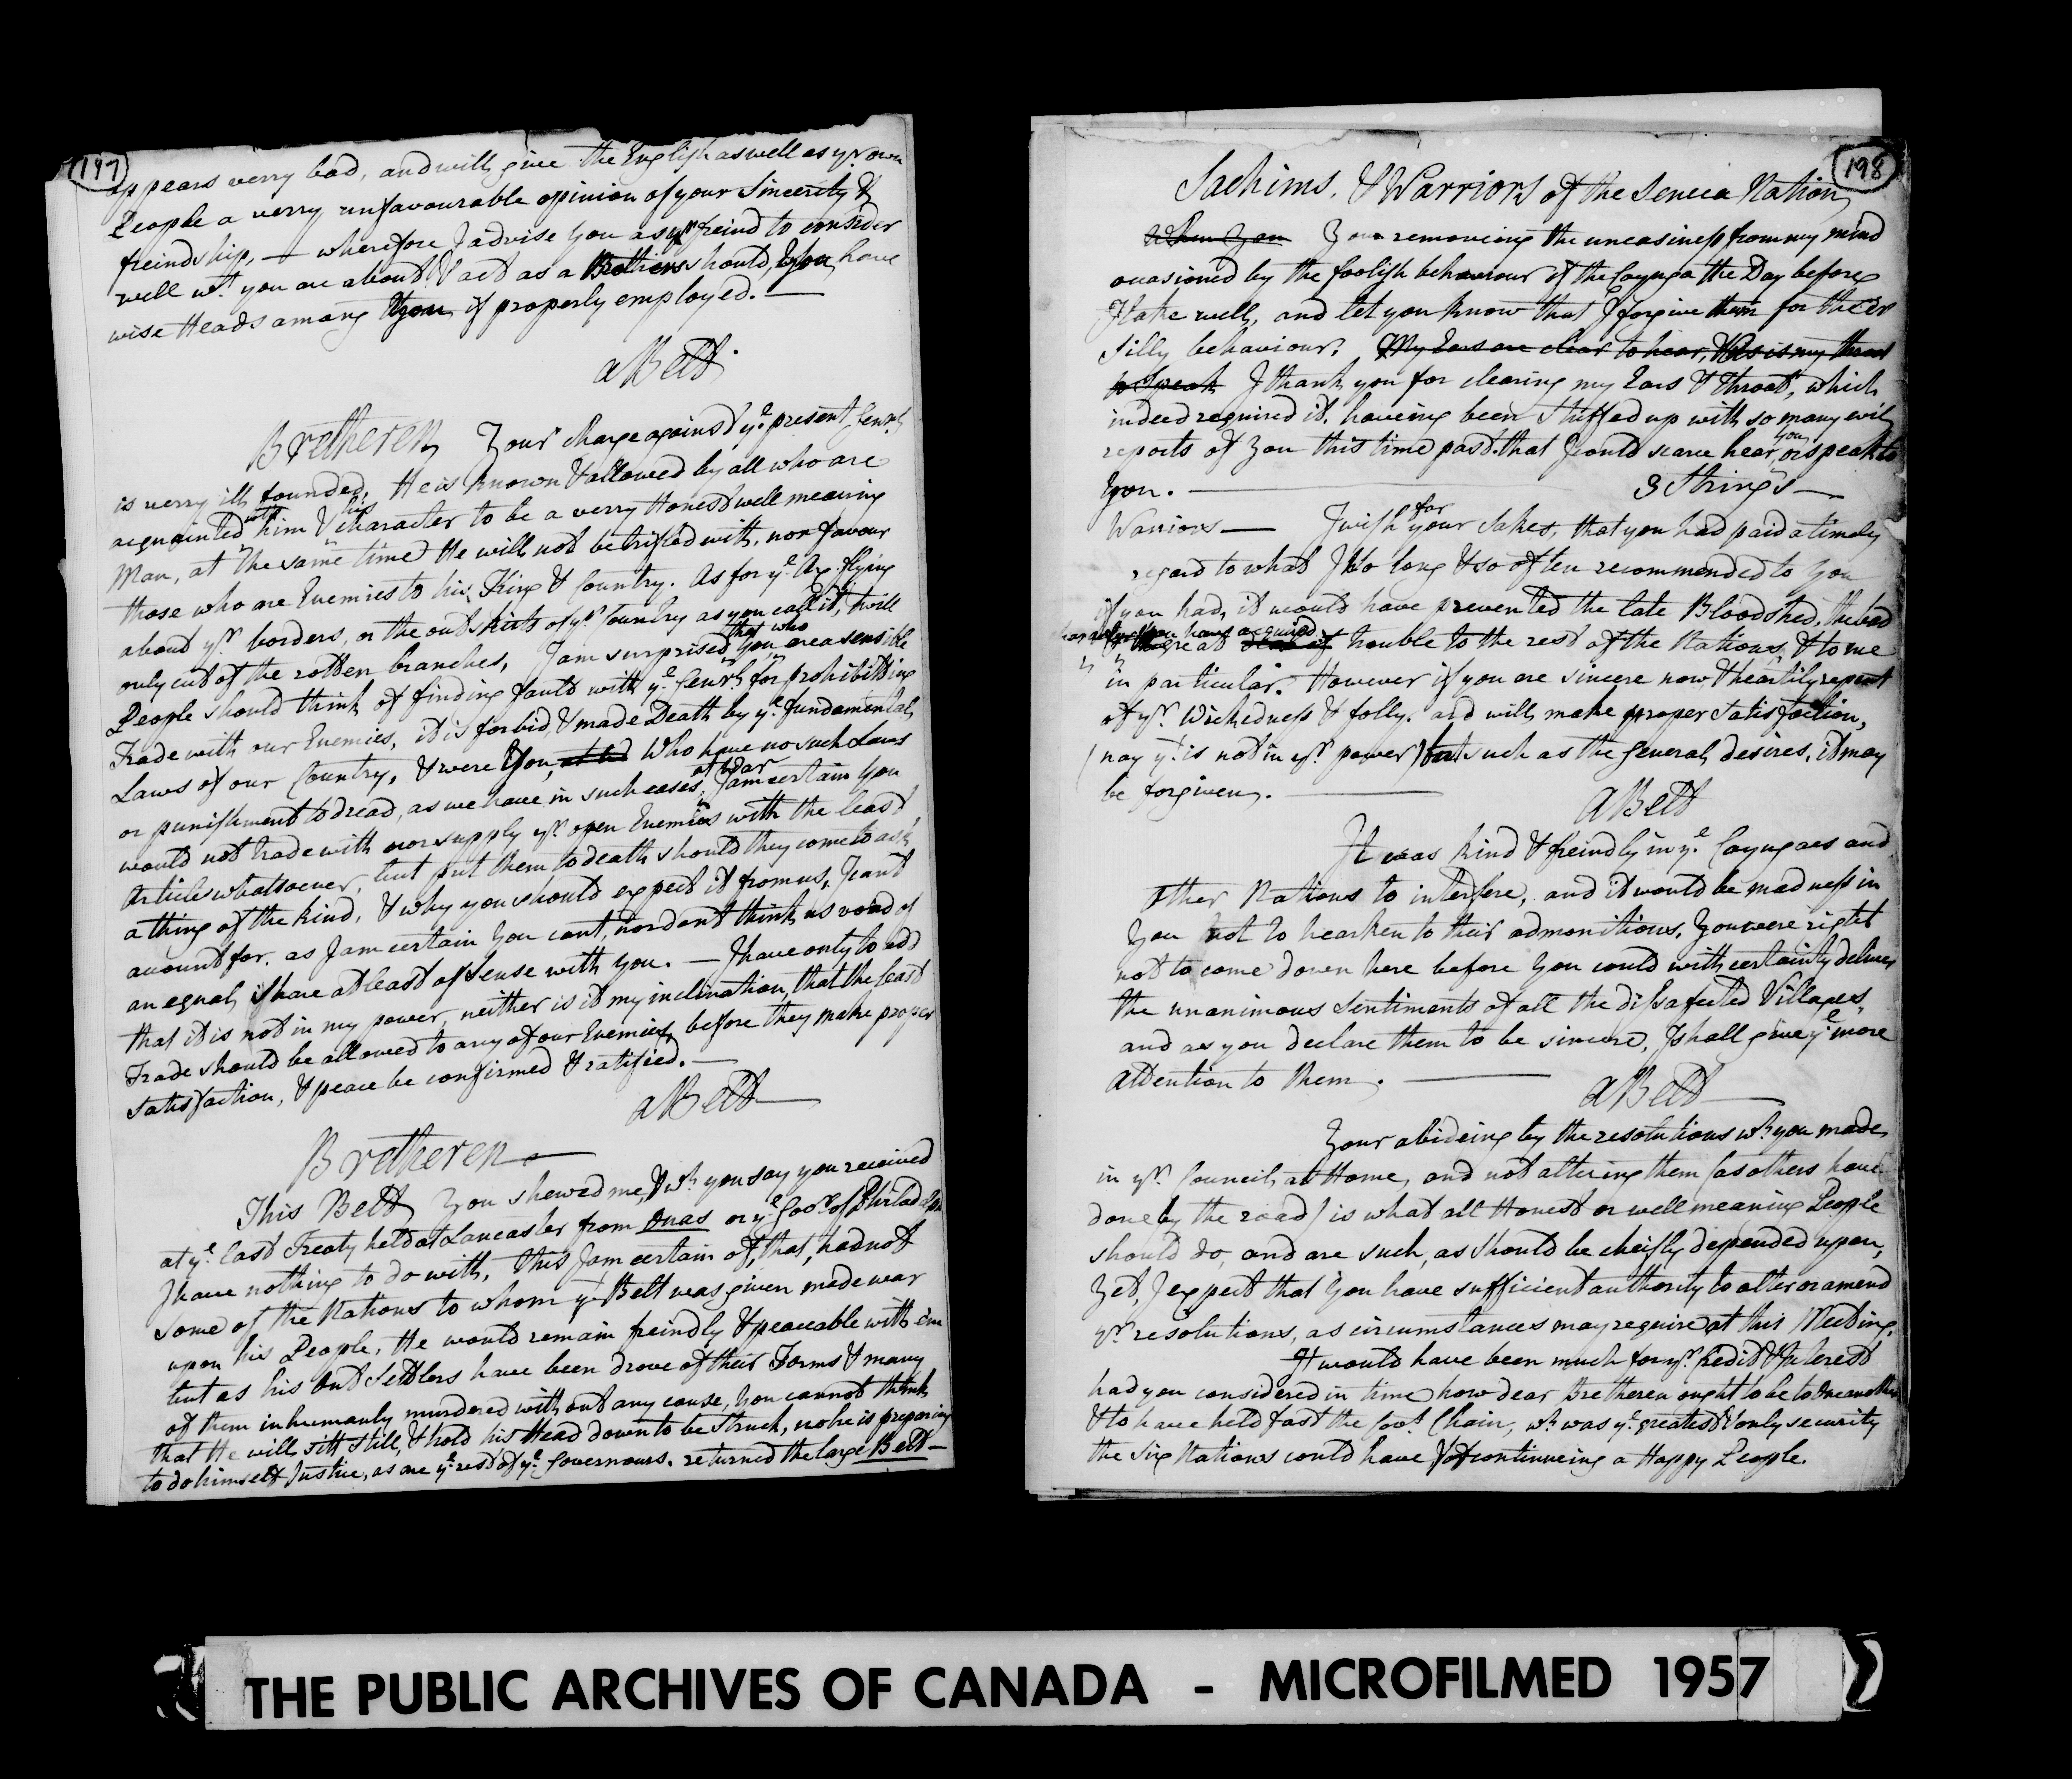 197
appears verry bad, and will give the English as well as yr. own
People a verry unfavourable opinion of your Sincerity &
freindship, — wherefore I advise you as yr. freind to consider
well wt. you are about, & act as a Brothers should, you have
wise Heads among you if properly employed. —
a Belt.
Bretheren Your charge against ye. present Genrl.
is verry ill founded, He is known & allowed by all who are
acquainted with him & his character to be a verry Honest well meaning
Man, at the same time He will not be trifled with, nor favour
those who are Enemies to his King & Country. As for ye. Axe flying
about yr. borders, or the outskirts of yr. Country as you call it, twill
only cut of the rotten branches, I am surprised that you who are a sensible
People should think of finding fault with ye. Genrl. for prohibitting
Trade with our Enemies, it is forbid & made Death by ye. fundamental
Laws of our Country, & were You, Who have no such Laws
or punishment to dread, as we have in such cases, at War I am certain You
would not trade with nor supply yr. open Enemies with the least
Article whatsoever, but put them to death should they come to ask
a thing of the kind, & why you should expect it from us, I cant
account for, as I am certain You cant, nor dont think us void of
an equal Share at least of Sense with You. — I have only to add
that it is not in my power, neither is it my inclination, that the least
Trade should be allowed to any of our Enemies, before they make proper
Satisfaction, & peace be confirmed & ratified. —
a Belt —
Bretheren —
This Belt You shewed me, & wh. you say you received
at ye. last Treaty held at Lancaster from Onas or ye. Govr. of Philadelpa
I have nothing to do with, this I am certain of, that, had not
some of the Nations to whom yt. Belt was given made war
upon his People, He would remain freindly & peaceable with em
but as his out Settlers have been drove of their Farms & many
of them inhumanly murdered with out any cause, You cannot think
that He will sitt still, & hold his Head down to be Struck, no he is preparing
to do himself Justice, as are ye. rest of ye. Governours. returned the large Belt —
198
Sachims, & Warriors of the Seneca Nation
When You Your removeing the uneasiness from my mind
occasioned by the foolish behaviour of the Cayuga the Day before
I take well, and let you know that I forgive them for their
Silly behaviour. My Ears are clear to hear, & so is my throat
to Speak I thank you for clearing my Ears & throat, which
indeed required it, haveing been Stuffed up with so many evil
reports of You this time past that I could scarce hear you, or speak to
You. — 3 Strings —
Warriors — I wish for your Sakes, that you had paid a timely
regard to what I so long & so often recommended to You
if you had, it would have prevented the late Bloodshed, the bad
character you have acquired & great deal of trouble to the rest of the Nations, & to me
in particular. However if you are sincere now & heartily repent
of yr. Wickedness & folly, and will make proper Satisfaction,
(nay yt. is not in yr. power) but such as the General desires, it may
be forgiven. —
a Belt
It was kind & freindly in ye. Cayugaes and
other Nations to interfere, and it would be madness in
You not to hearken to their admonitions. You were right
not to come down here before You could with certainty deliver
the unanimous Sentiments of all the dissafected Villages,
and as you declare them to be sincere, I shall give ye. more
attention to them. —
a Belt —
Your abideing by the resolutions wh. you made
in yr. Council at Home, and not altering them (as others have
done by the road) is what all Honest or well meaning People
should do, and are such, as should be cheifly depended upon,
Yet, I expect that You have sufficient authority to alter or amend
yr. resolutions, as circumstances may require at this Meeting.
It would have been much for yr. Credit & Interest
had you considered in time how dear Bretheren ought to be to one another
& to have held fast the Covt. Chain, wh. was ye. greatest & only security
the Six Nations could have of continueing a Happy People.
THE PUBLIC ARCHIVES OF CANADA - MICROFILMED 1957